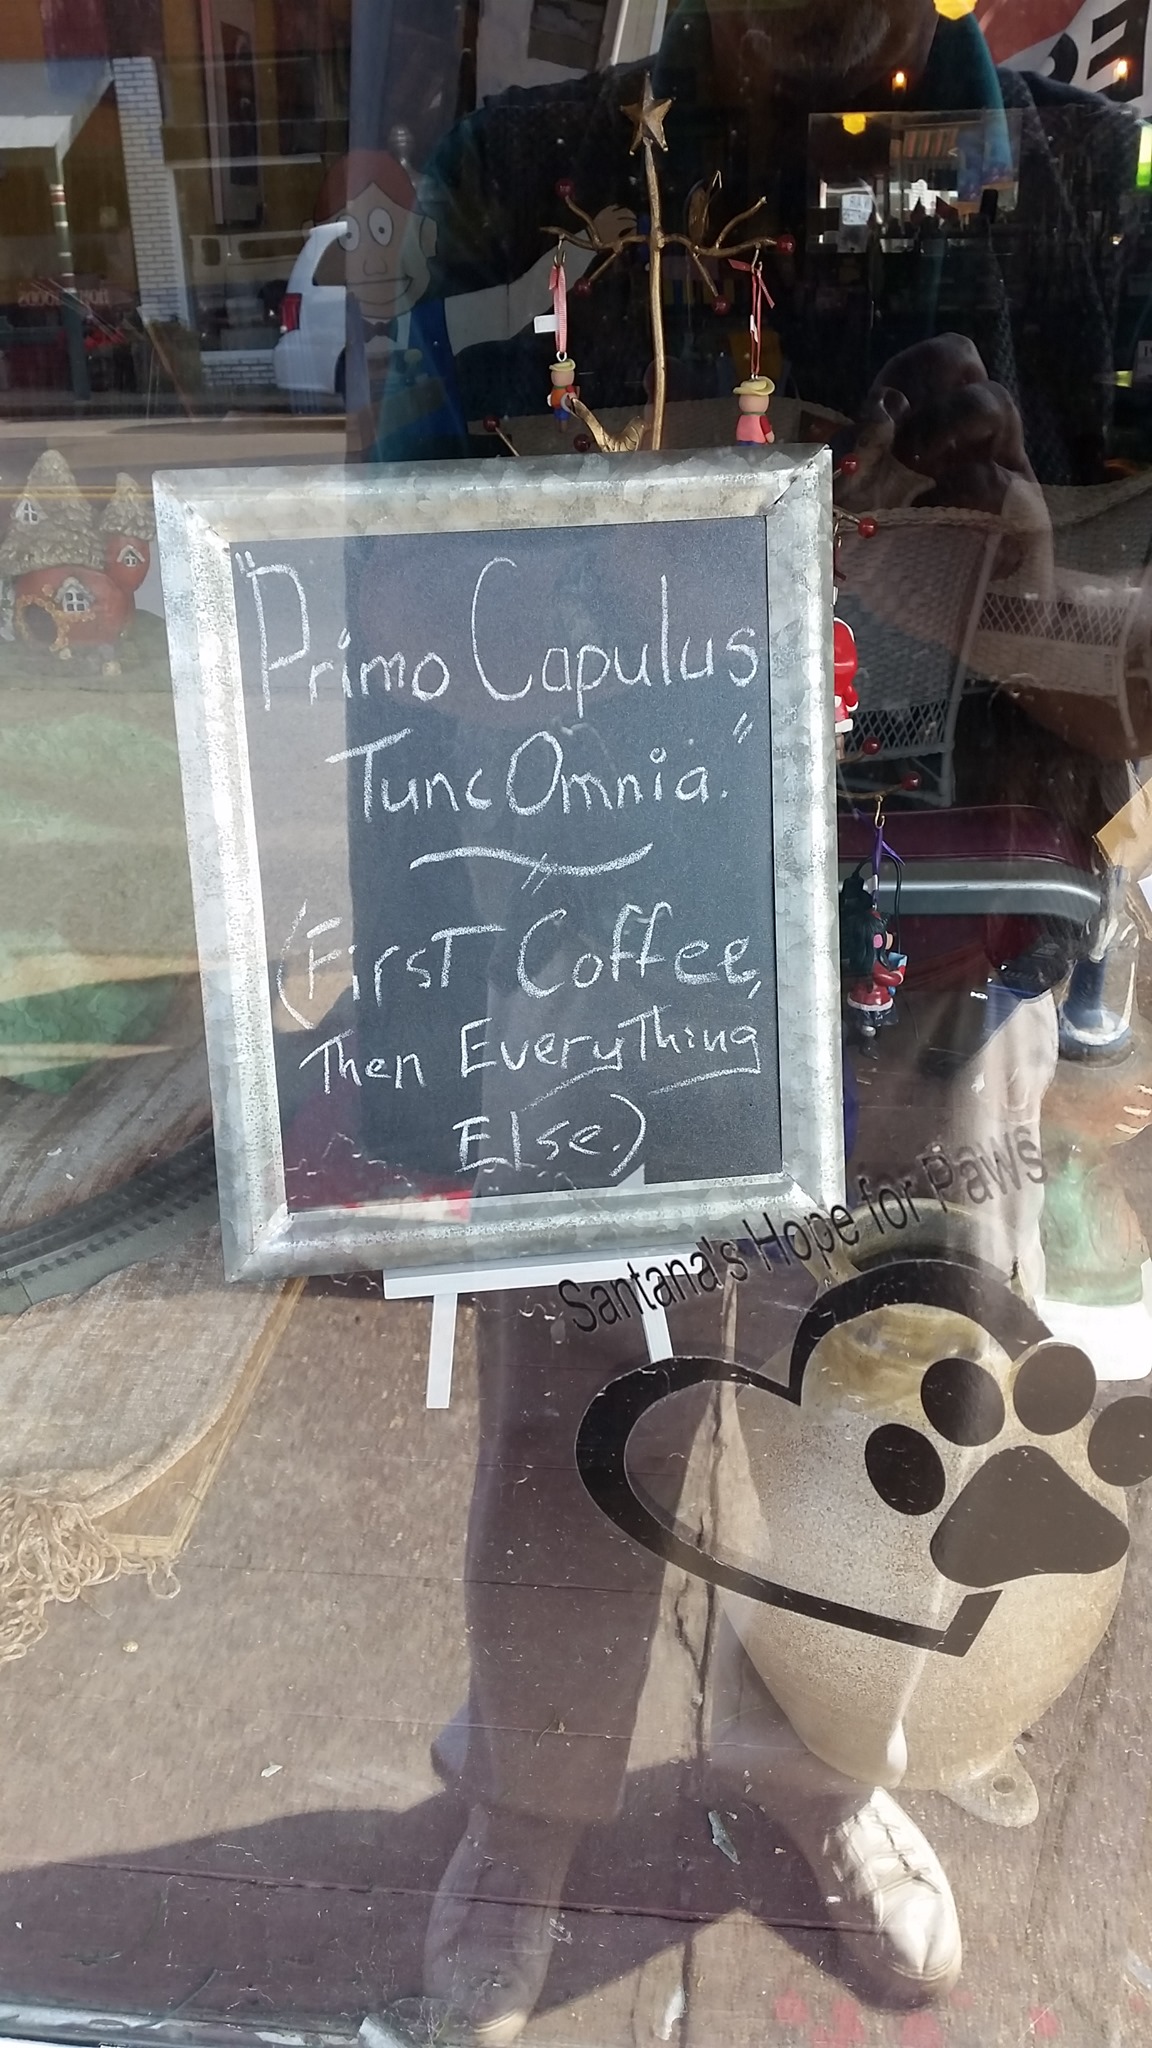 "Primo Capulus
Tunc Omnia."
(First Coffee,
Then EveryThing
Else.)
Santana's Hope for Paws